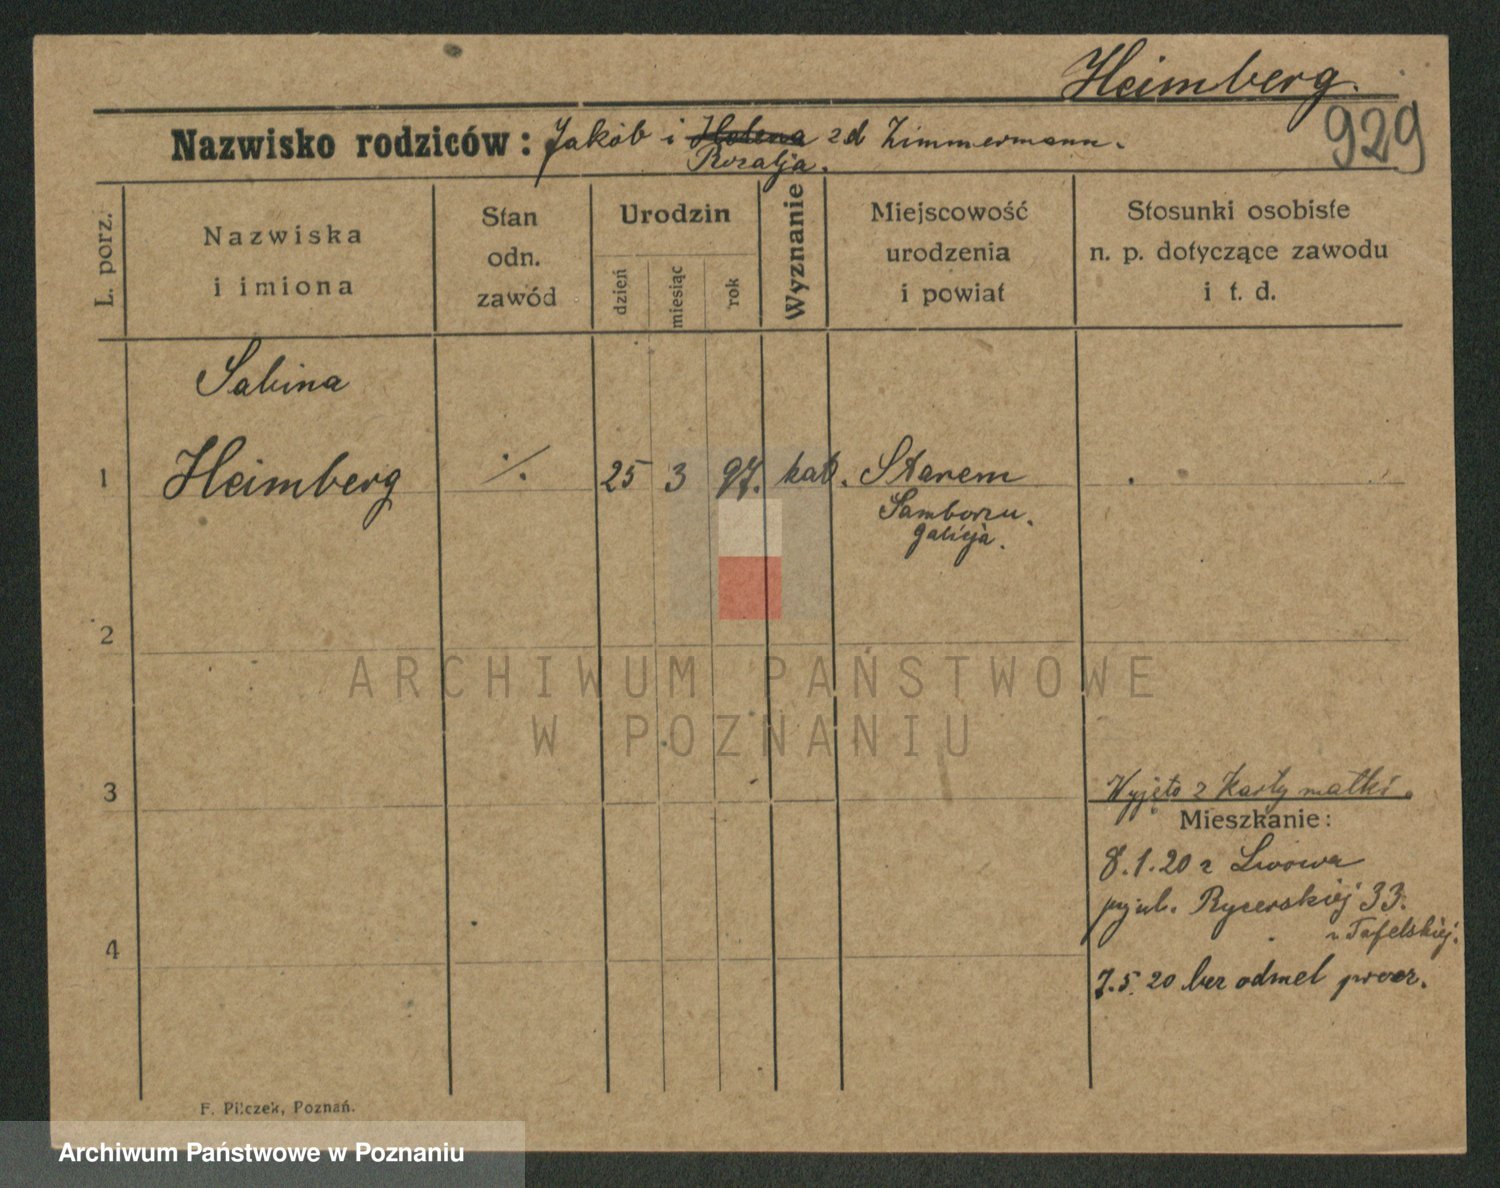 Heimberg.
929
Nazwisko rodziców: Jakób i Helena zd Zimmermann.
Rozalja.
L. porz.
Nazwiska
i imiona
Stan
odn.
zawód
Urodzin
dzień
miesiąc
rok
Wyznanie
Miejscowość
urodzenia
i powiat
Stosunki osobiste
n. p. dotyczące zawodu
i t. d.
Sabina
1 Heimberg ./. 25 3 97. kat. Starem
Samborzu.
Galicja.
2
3
Wyjęto z Karty matki.
Mieszkanie:
8.1.20 z Lwowa
przy ul. Rycerskiej 33.
u Tafelskiej.
4
7.5.20 bez odmel
F. Pilczek, Poznań.
ARCHIWUM PAŃSTWOWE
W POZNANIU
Archiwum Państwowe w Poznaniu